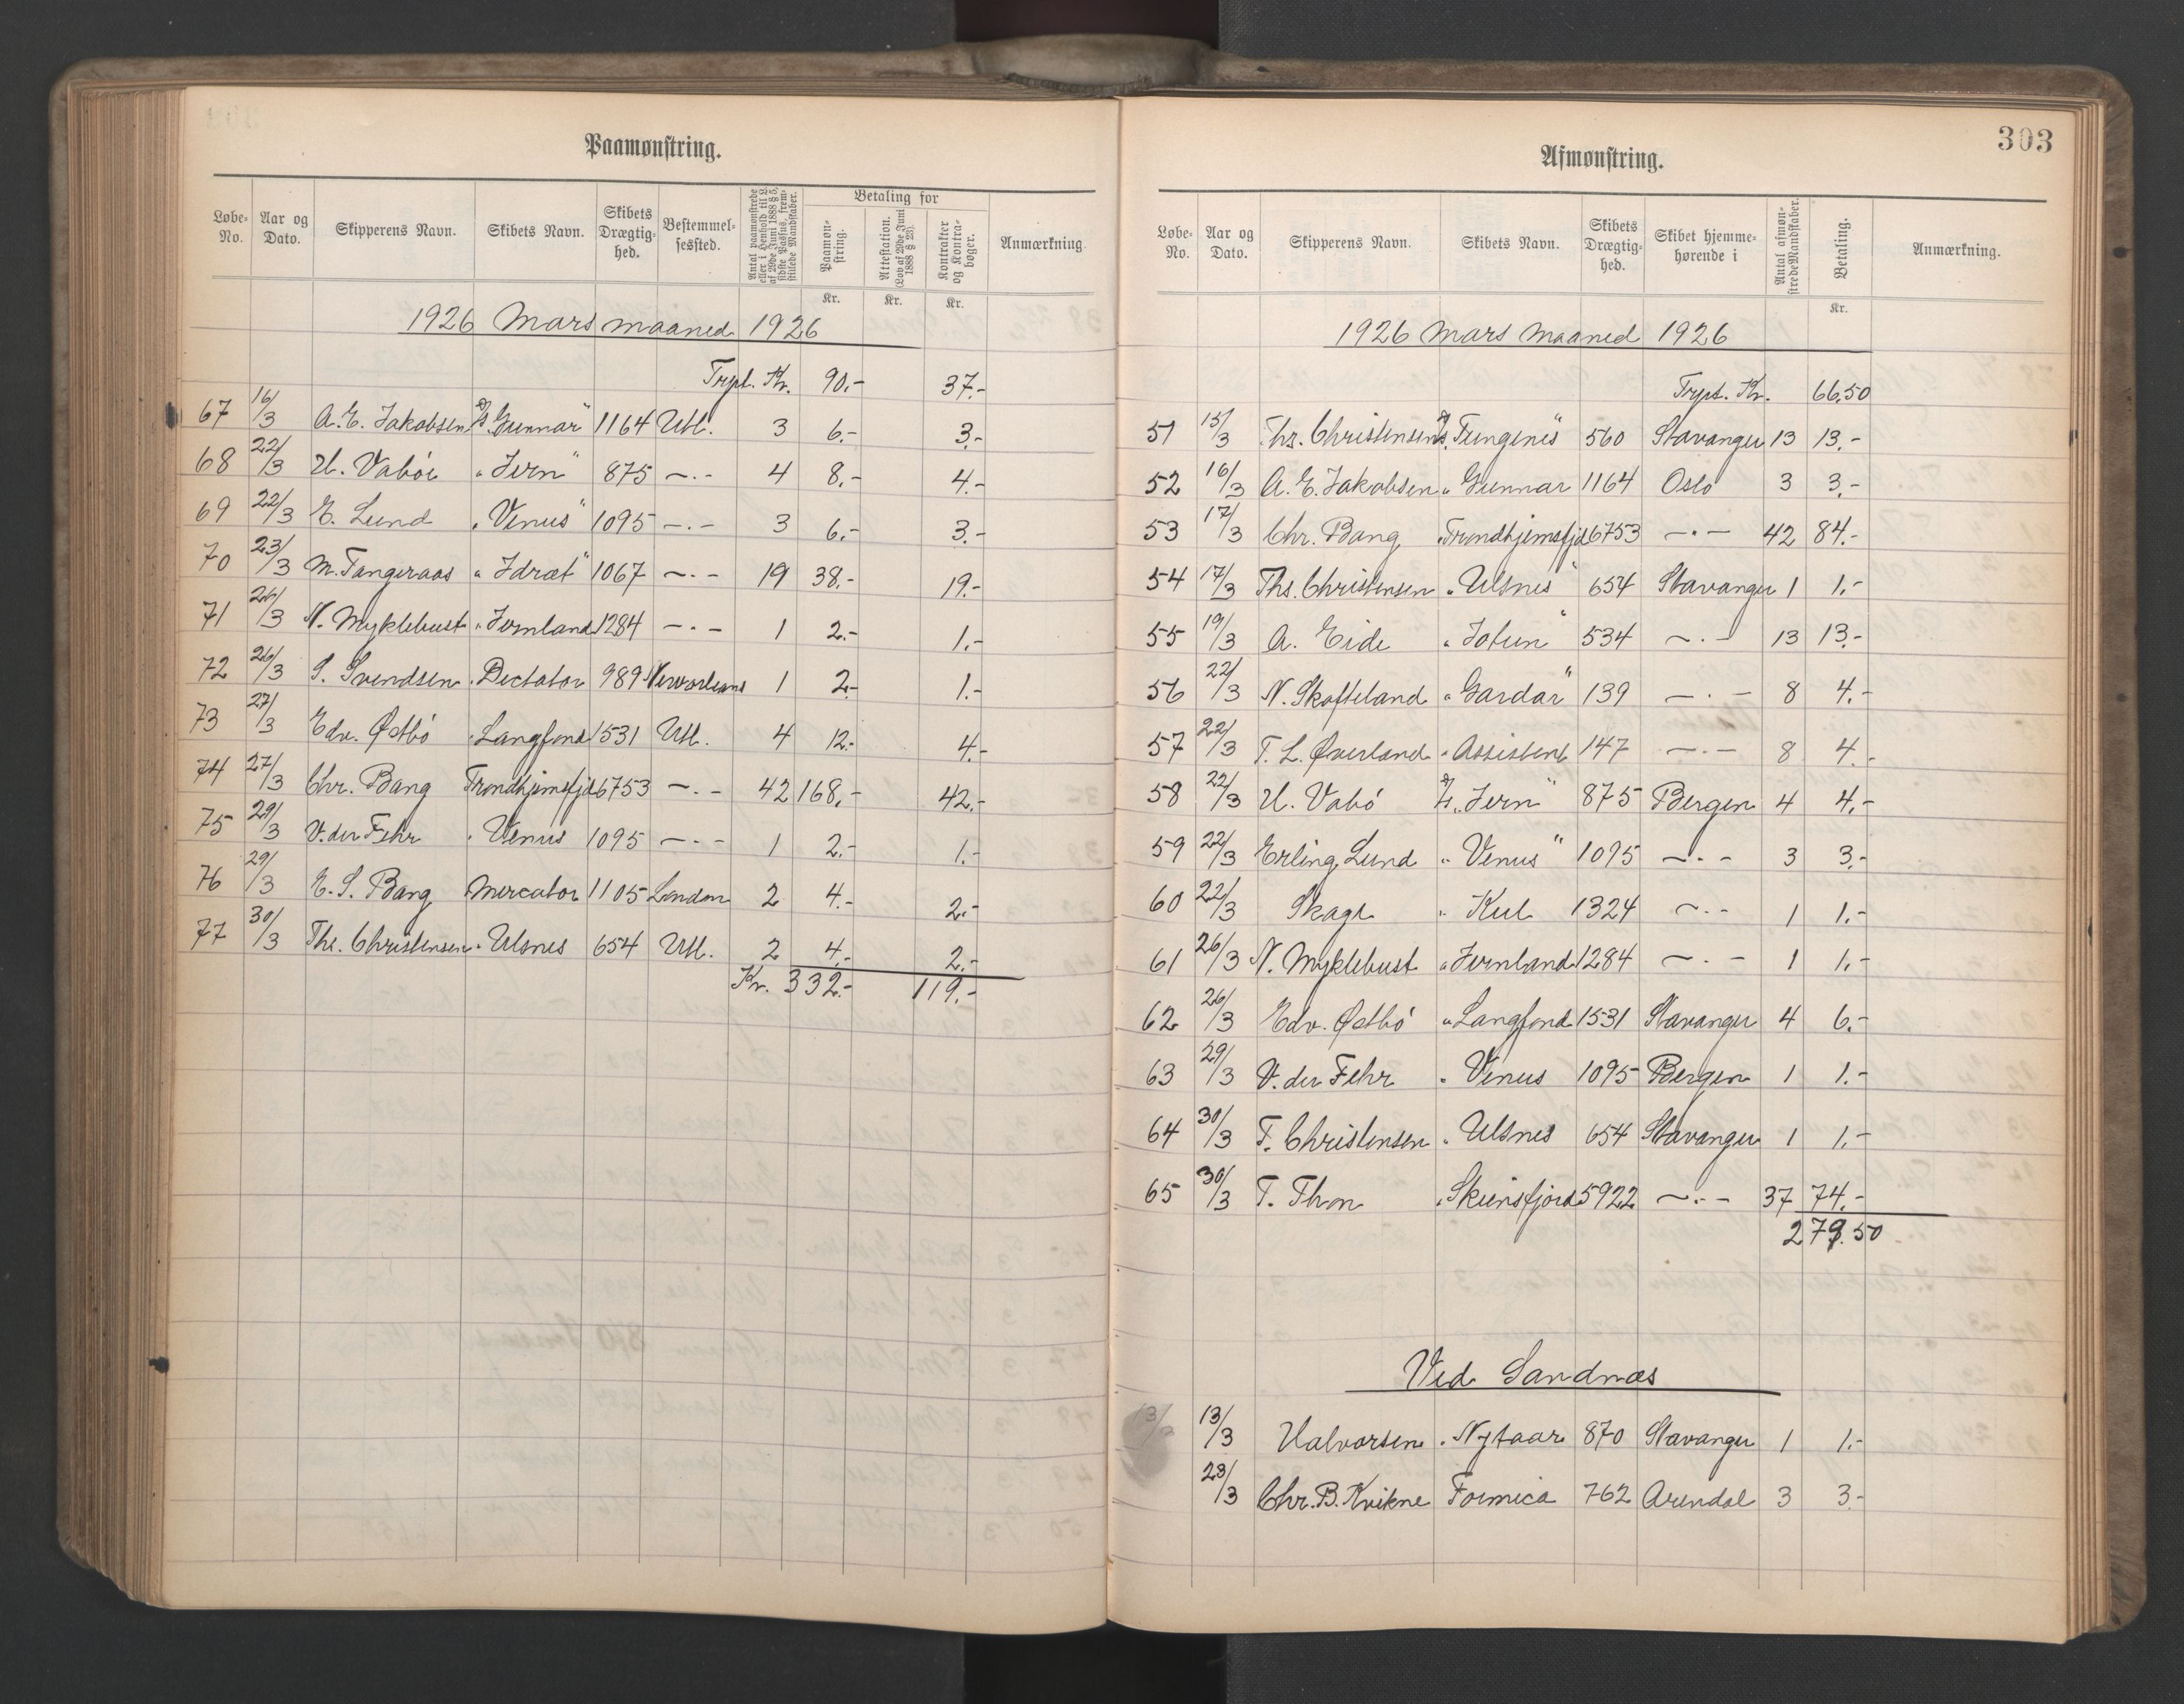 Paamønstring.
Løbe-No. Aar og Dato. Skipperens Navn. Skibets Navn. Skibets Drægtighed. Bestemmelsessted. Antal paamønstrede eller i Henhold til L. af 29de Juni 1888 § 5, sidste Passus, fremstillede Mandskaber. Betaling for Paamønstring. Attestation. (Lov af 29de Juni 1888 § 23). Kontrakter og Kontrabøger. Anmærkning
Kr. Kr. Kr.
1926 Mars maaned 1926
Trpt. Kr. 90.- 37.-
67 16/3 A. E. Jakobsen D/S "Gunnar" 1164 Utl. 3 6.- 3.-
68 22/3 U. Vabö " Jern" 875 -〃- 4 8.- 4.-
69 22/3 E. Lund " Venus" 1095 -〃- 3 6.- 3.-
70 23/3 M. Tangeraas " Idræt" 1067 -〃- 19 38.- 19.-
71 26/3 N. Myklebust " Jernland 1284 -〃- 1 2.- 1.-
72 26/3 S. Svendsen " Dictator 989 Neworleans 1 2.- 1.-
73 27/3 Edv. Østbö " Langfond 1531 Utl. 4 12.- 4.-
74 27/3 Chr. Bang Trondhjemsfjd 6753 -〃- 42 168.- 42.-
75 29/3 V. der Fehr " Venus 1095 -〃- 1 2.- 1.-
76 29/3 E. S. Bang Mercator 1105 London 2 4.- 2.-
77 30/3 Ths. Christensen " Ulsnes 654 Utl. 2 4.- 2.-
Kr. 332.- 119.-
303
Afmønstring.
Løbe-No. Aar og Dato. Skipperens Navn. Skibets Navn. Skibets Drægtighed. Skibet hjemmehørende i Antal afmønstrede Mandskaber. Betaling. Anmærkning.
Kr.
1926 Mars maaned 1926
Trpt. Kr. 66.50
51 15/3 Ths. Christensen D/S "Tungenes" 560 Stavanger 13 13.-
52 16/3 A. E. Jakobsen " Gunnar 1164 Oslo 3 3.-
53 17/3 Chr. Bang " Trondhjemsfjd 6753 -〃- 42 84.-
54 17/3 Ths. Christensen " Ulsnes" 654 Stavanger 1 1.-
55 19/3 A. Eide " Jotun" 534 -〃- 13 13.-
56 22/3 N. Skofteland " Gardar" 139 -〃- 8 4.-
57 22/3 T. L. Øverland " Assistent 147 -〃- 8 4.-
58 22/3 U. Vabö D/S "Jern" 875 Bergen 4 4.-
59 22/3 Erling Lund " Venus" 1095 -〃- 3 3.-
60 22/3 Skage " Kul 1324 -〃- 1 1.-
61 26/3 N. Myklebust " Jernland 1284 -〃- 1 1.-
62 26/3 Edv. Østbö " Langfond 1531 Stavanger 4 6.-
63 29/3 V. der Fehr " Venus 1095 Bergen 1 1.-
64 30/3 T. Christensen " Ulsnes 654 Stavanger 1 1.-
65 30/3 T. Thon " Skiensfjord 5922 -〃- 37 74.-
279.50
Ved Sandnæs
13/3 Halvorsen " Nytaar 870 Stavanger 1 1.-
23/3 Chr. B. Kvikne Formica 762 Arendal 3 3.-